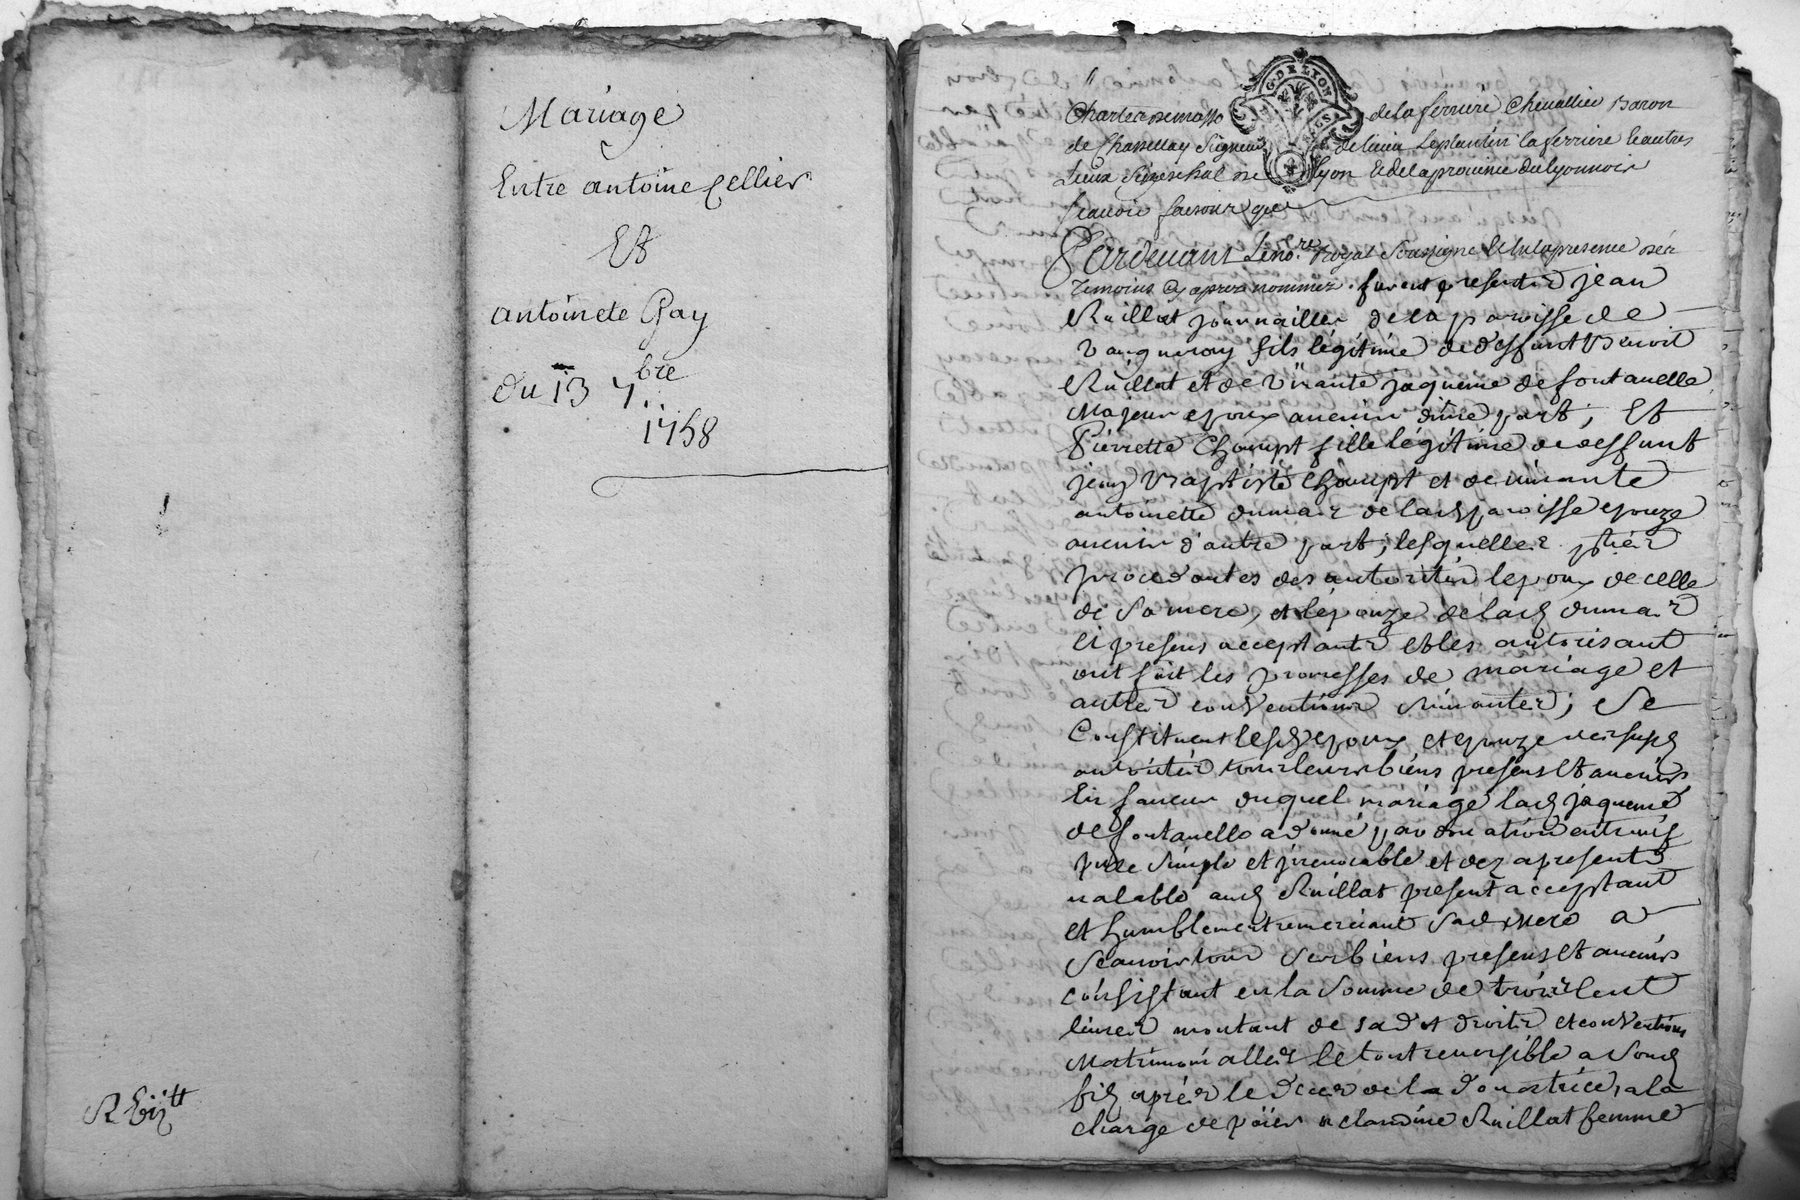 Mariage
Entre antoine Cellier
Et
antoinete Gay
du 13 7.bre
1758
G. DE LYON
Charles de masso de la ferriere Chevallier Baron
de Chasselay Signeur de lissieu Leplantin la ferriere & autres
Lieux Sénéschal de Lyon & de la province du lyonnois
scavoir faisons que
Pardevant Leno.re Royal soussigné & en la presence des
temoins cy apres nommez. furent presents jean
Ruillat journaillier de la paroisse de
vaugneray fils légitime de deffunt Benoit
Ruillat et de vivante jaqueme de fontanelle
Majeur epoux avenir d'une part; Et
Pierrette Choupt fille légitime de deffunt
jean Baptiste Choupt et de vivante
antoinette dumas de lad paroisse epouze
avenir d'autre part; lesquelles pties
procedantes des autorités lepoux de celle
de sa mere, et l'épouze de lad dumas
ci presens acceptants et les autorisant
ont fait les promesses de mariage et
autres conventions suivantes; se
Constituent lesd epoux et epouze des susd
autorités tous leurs biens presens et avenirs
En faveur duquel mariage lad jaqueme
de fontanelle a donné par donation entrevifs
pure simple et jrrevocable et dez apresents
valable aud Ruillat present acceptant
et humblement remerciant sad mere a
scavoir tous ses biens presens et avenirs
consistant en la somme de trois cent
livres montant de sa dot droits et conventions
Matrimonialles le tout reversible a sond
fils après le deces de la donatrice, a la
charge de païer a claudine Ruillat femme